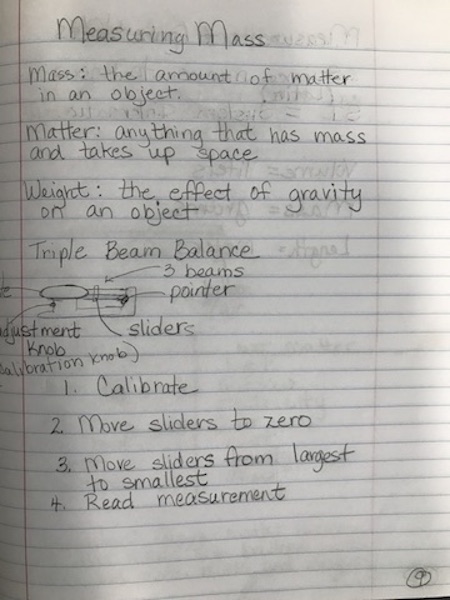 Measuring Mass
Mass: the amount of matter
in an object.
Matter: anything that has mass
and takes up space
Weight: the effect of gravity
on an object
Triple Beam Balance
3 beams
pointer
sliders
adjustment
knob
calibration knob)
1. Calibrate
2. Move sliders to zero
3. Move sliders from largest
to smallest
4. Read measurement
9